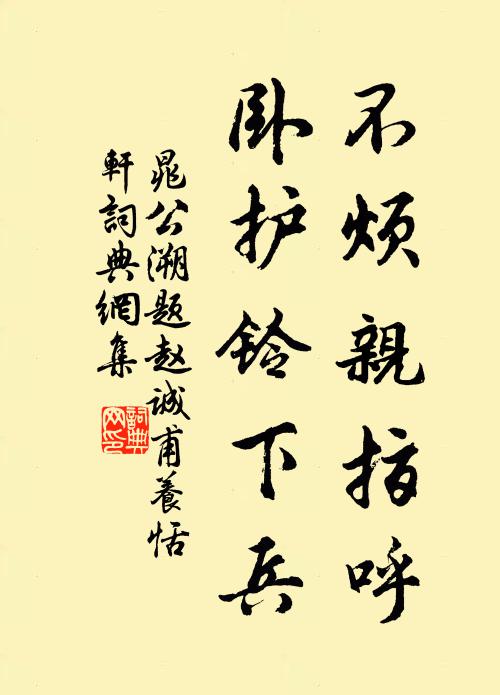 不烦親指呼
卧护铃下兵
晁公溯题赵诚甫養恬
軒詞典網集
詞典网印